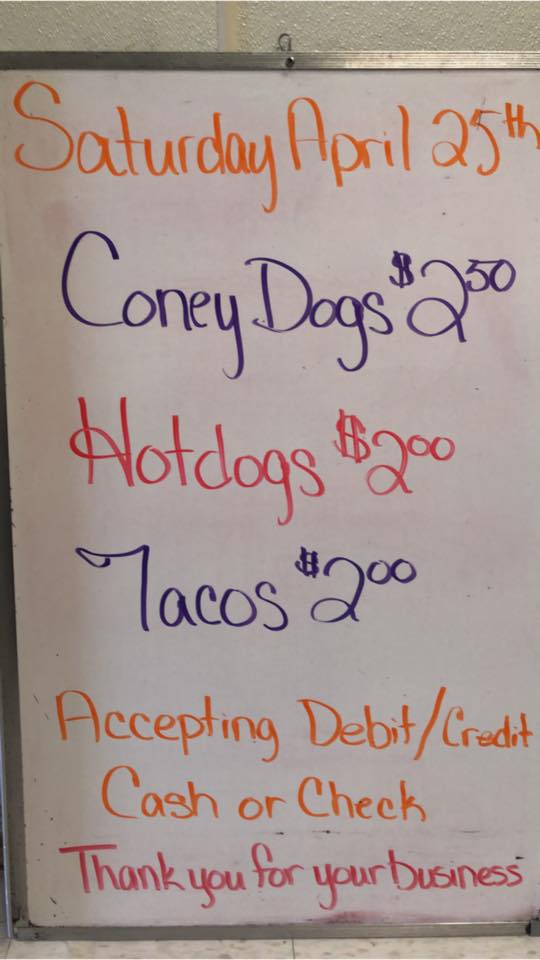 Saturday April 25th
Coney Dogs $2.50
Hotdogs $2.00
Tacos $2.00
Accepting Debit/Credit
Cash or Check
Thank you for your business